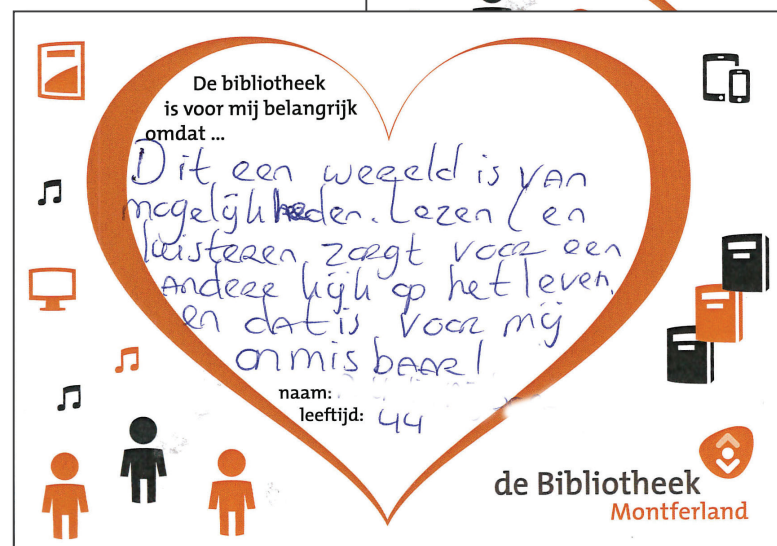 De bibliotheek
is voor mij belangrijk
omdat ...
Dit een wereld is van
mogelijkheden. Lezen (en
luisteren zorgt voor een
andere kijk op het leven,
en dat is voor mij
onmisbaar!
naam:
leeftijd: 44
de Bibliotheek
Montferland